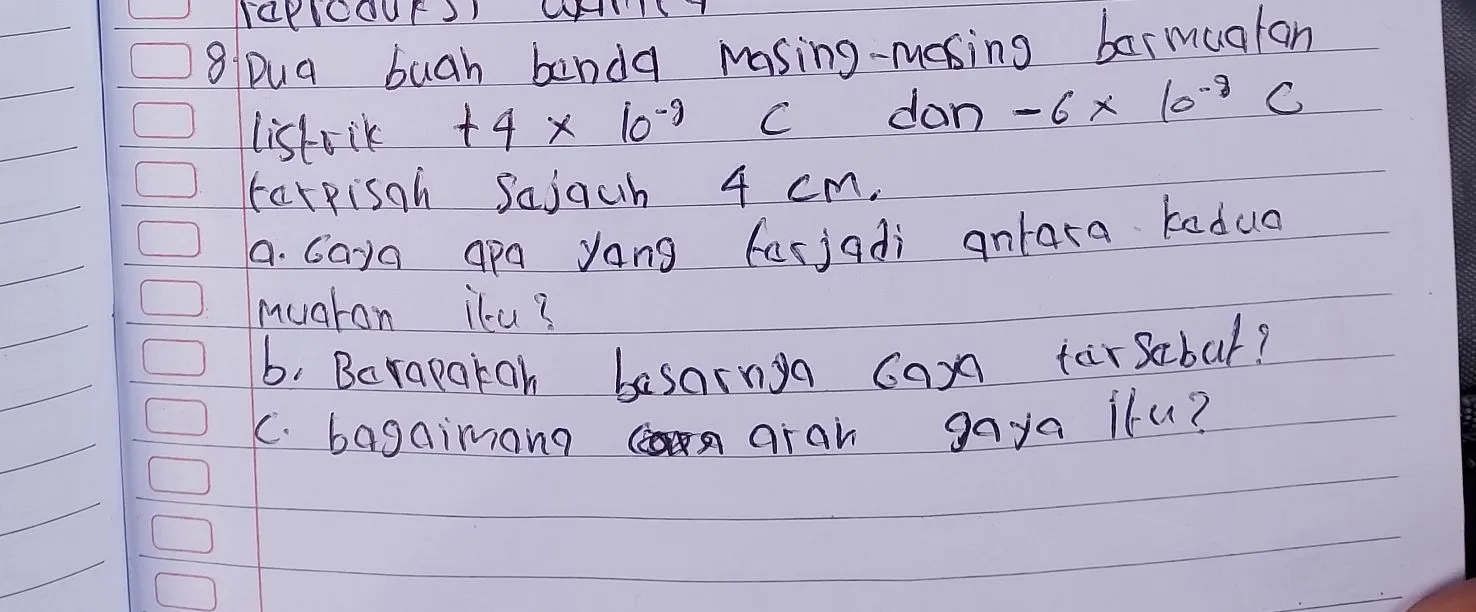 8. Dua buah benda masing-masing bermuatan
listrik +4 × 10⁻⁹ C dan -6 × 10⁻⁹ C
terpisah sejauh 4 cm.
a. Gaya apa yang terjadi antara kedua
muatan itu?
b. Berapakah besarnya Gaya tersebut?
c. bagaimana arah gaya itu?